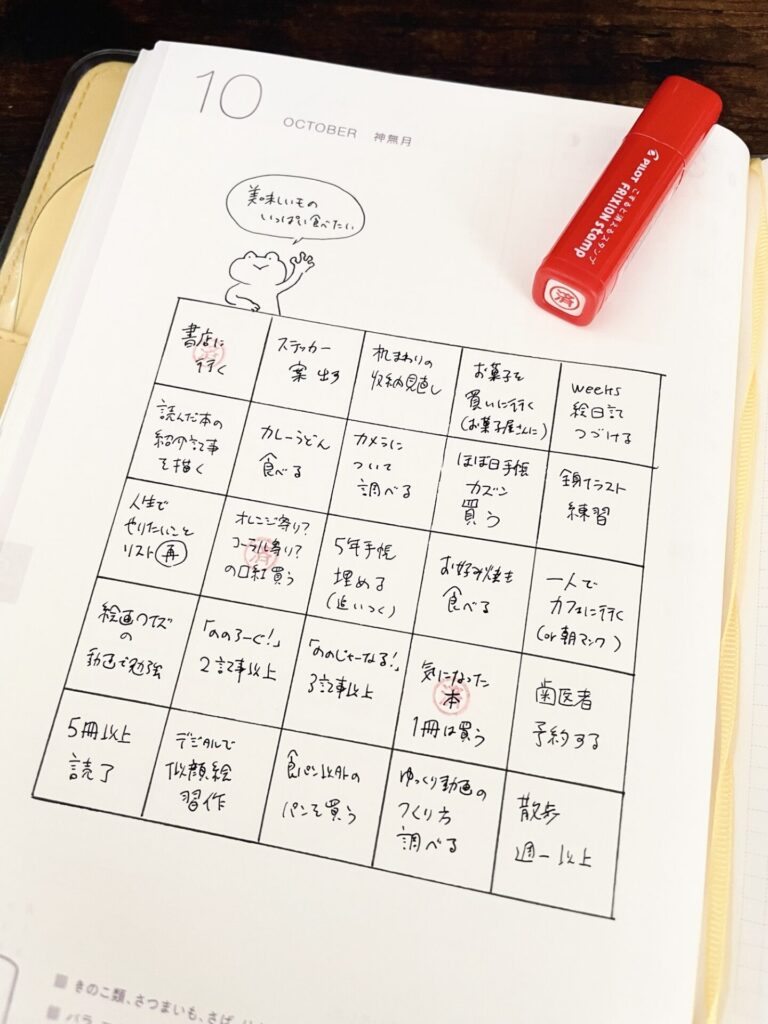 10
OCTOBER 神無月
PILOT FRIXION stamp
こすると消えるスタンプ
済
美味しいもの
いっぱい食べたい
書店に
行く
済
ステッカー
案出す
机まわりの
収納見直し
お菓子を
買いに行く
(お菓子屋さんに)
weeks
絵日記
つづける
読んだ本の
紹介記事
を描く
カレーうどん
食べる
カメラに
ついて
調べる
ほぼ日手帳
カズン
買う
全身イラスト
練習
人生で
やりたいこと
リスト 再
オレンジ寄り?
コーラル寄り?
の口紅買う
済
5年手帳
埋める
(追いつく)
お好み焼き
食べる
一人で
カフェに行く
(or 朝マック)
絵画クイズ
の
動画で勉強
「ののろーぐ!」
2記事以上
「ののじゃーなる!」
3記事以上
気になった
本
1冊は買う
済
歯医者
予約する
5冊以上
読了
デジタルで
似顔絵
習作
食パン以外の
パンを買う
ゆっくり動画の
つくり方
調べる
散歩
週一以上
きのこ類、さつまいも、さば、